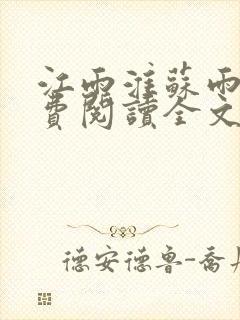 江雨淮蘇雨
費閱讀全文
德安德魯-喬丹